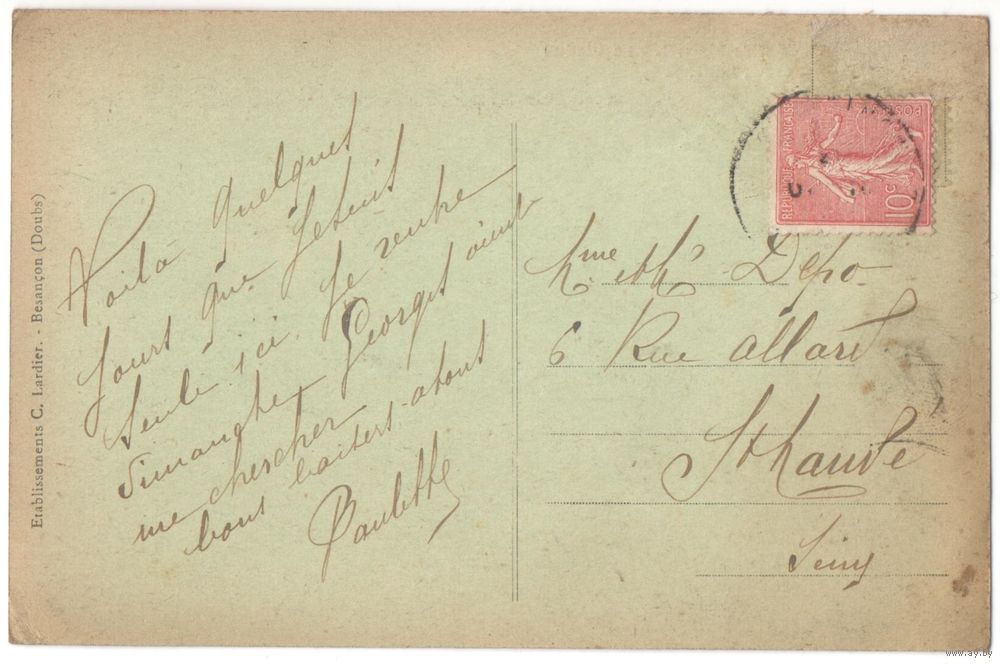 Voilà quelques
jours que je suis
seule ici. Je rentre
dimanche Georges vient
me chercher
bons baisers a tous
Paulette
Mme et Mr Depo
6 Rue Allard
St Mandé
Seine
Etablissements C. Lardier. - Besançon (Doubs)
REPUBLIQUE FRANÇAISE
POSTES
10c
www.ay.by